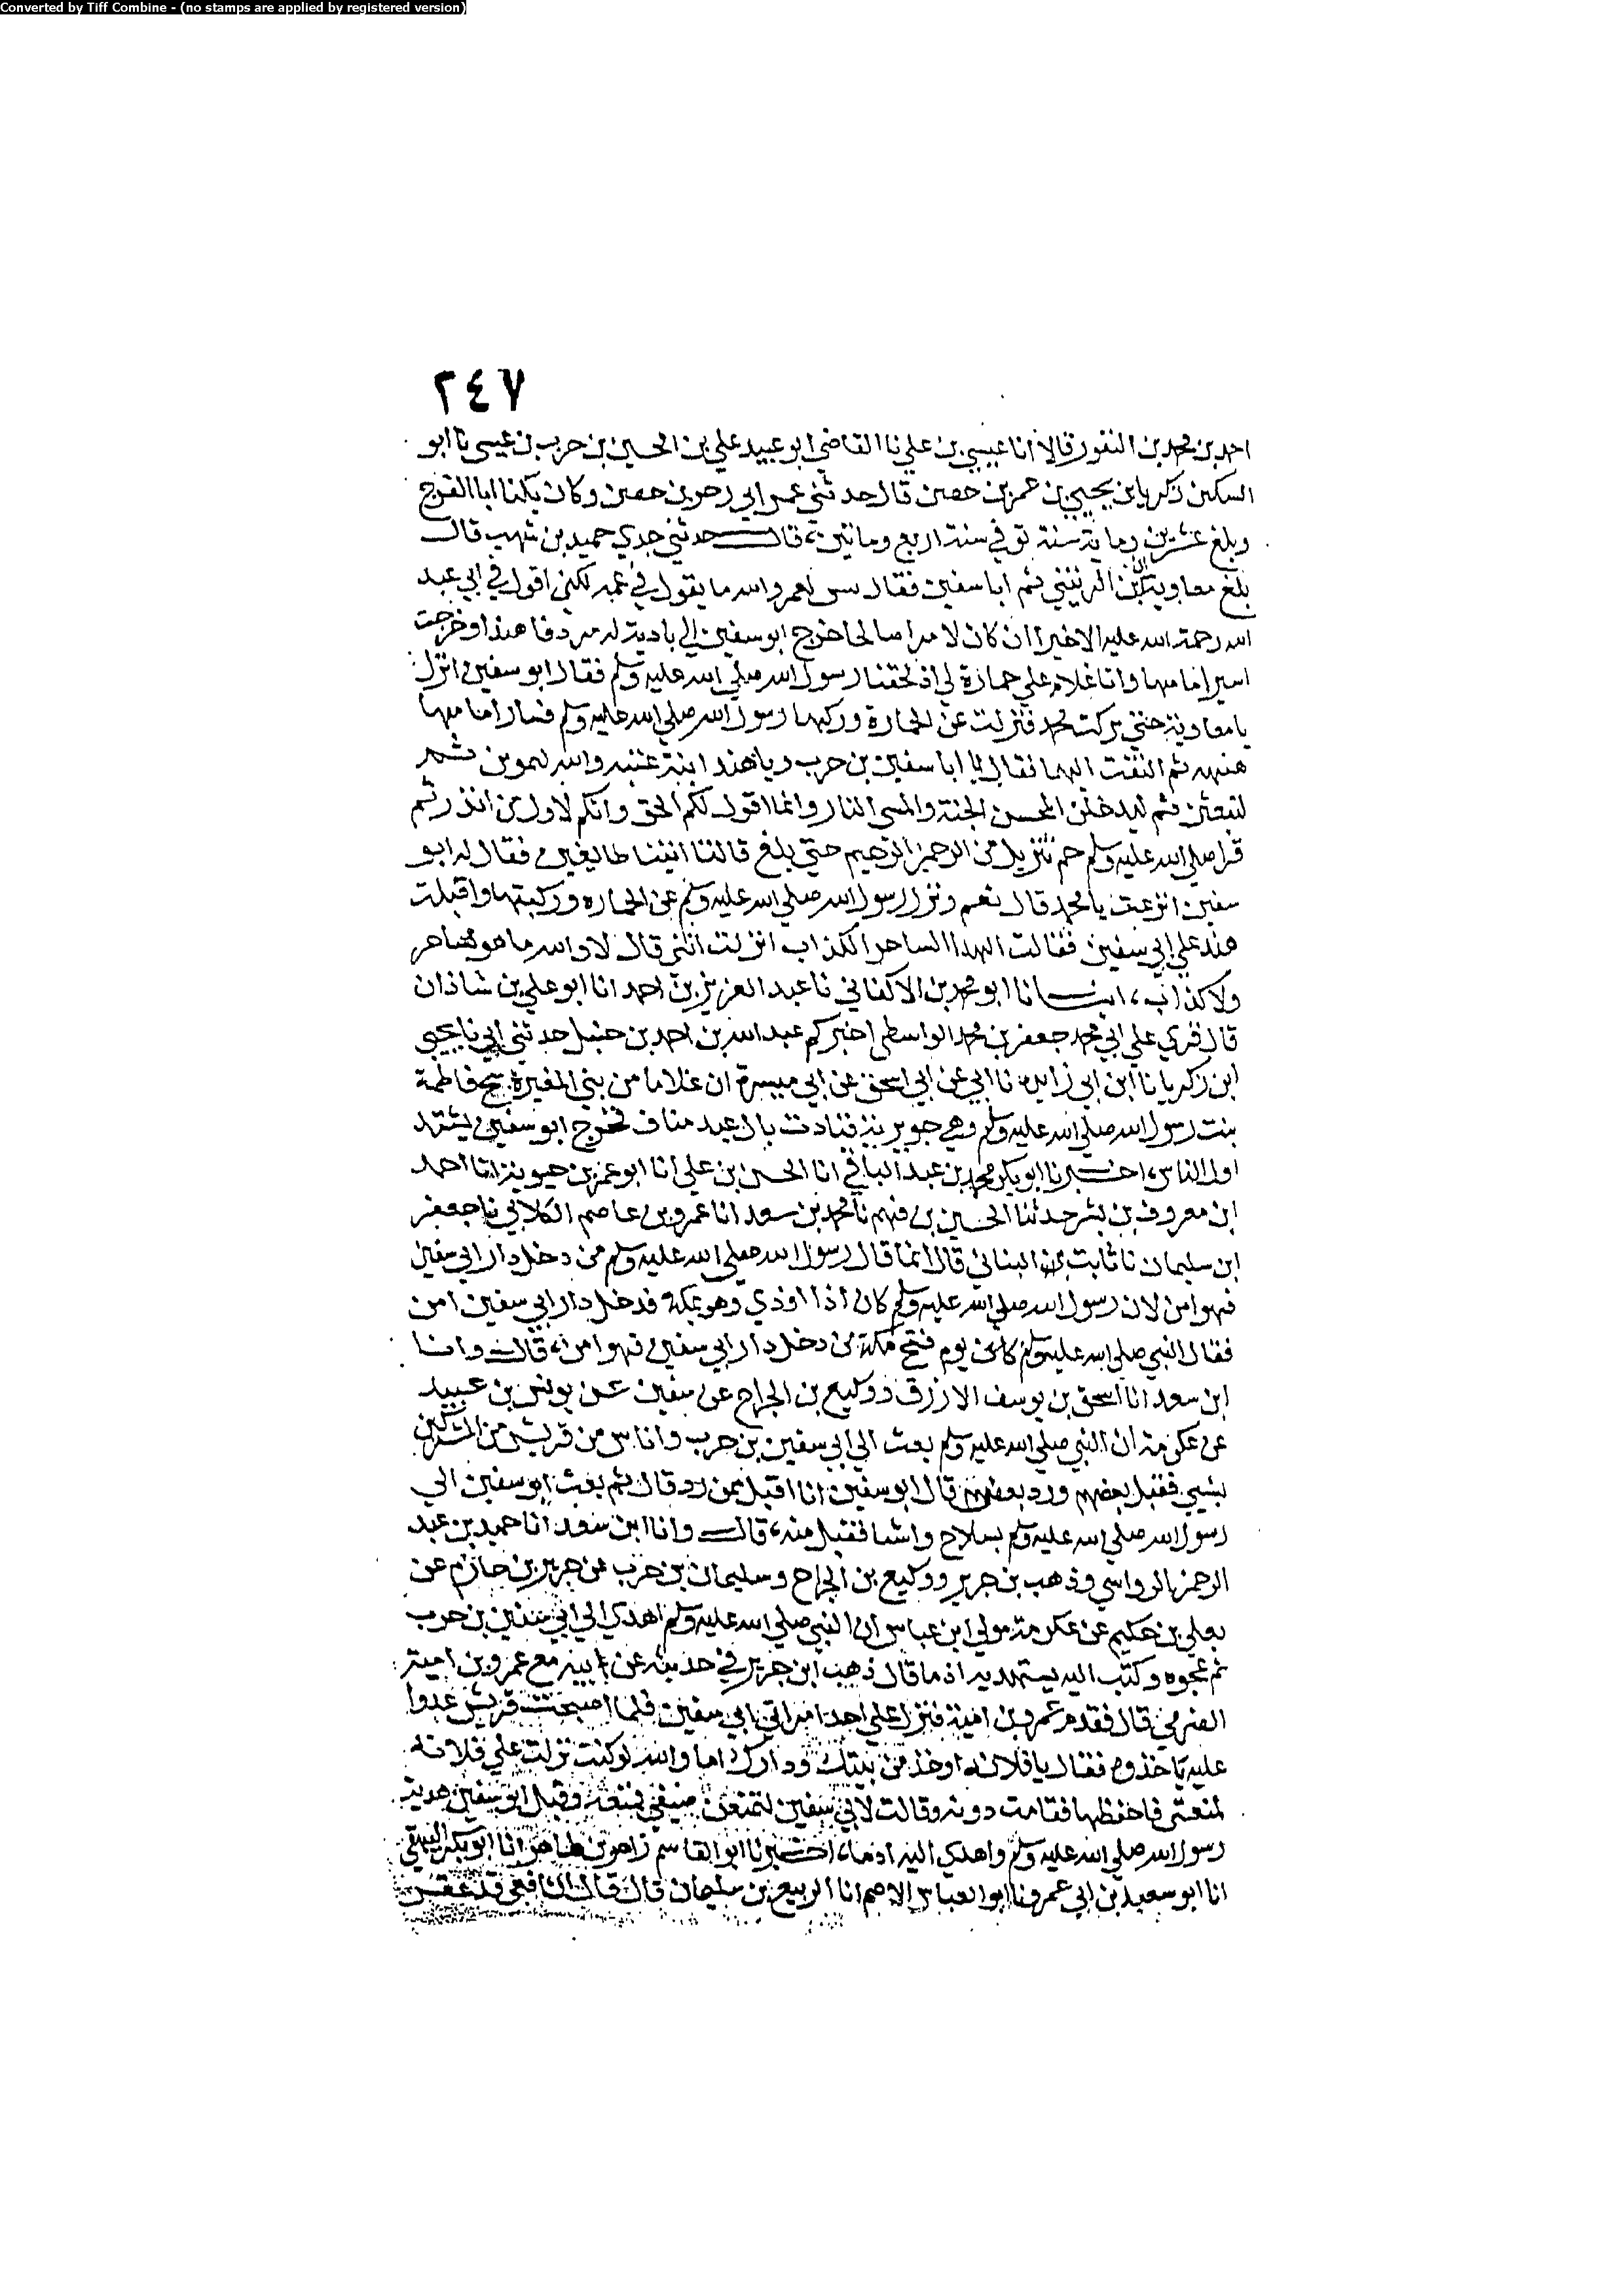 Converted by Tiff Combine - (no stamps are applied by registered version)
٢٤٧
احمد بن محمد بن النقور قالا انا عيسى بن علي نا القاضي ابو عبيد علي بن الحسين بن حرب بن عيسى نا ابو
السكين زكريا بن يحيى بن عمر بن حصين قال حدثني عم ابي زحر بن حصين وكان يكنا ابا الفرج
وبلغ عشرين وماية سنة توفي سنة اربع وماتين، قال حدثني جدي حميد بن منهب قال
بلغ معاوية ان ابن الزبير شتم ابا سفين فقال بس لعمرو الله ما يقول في عمه لكني اقول في ابي عبد
الله رحمة الله عليه الا خيرا ان كان لامرا صالحا خرج ابو سفين الي بادية له مردفا هندا وخرجت
اسير امامها وانا غلام علي حمارة لي اذ لحقنا رسول الله صلي الله عليه وسلم فقال ابو سفين انزل
يا معاوية حتي يركب محمد فنزلت عن الحمارة وركبها رسول الله صلي الله عليه وسلم فسار امامها
هنيهة ثم التفت اليهما فقال يا ابا سفين بن حرب ويا هند ابنة عتبه والله لتموتن ثم
لتبعثن ثم ليدخلن المحسن الجنة والمسي النار وانما اقول لكم الحق وانكم لاول من انذر ثم
قرا صلي الله عليه وسلم حم تنزيل من الرحمن الرحيم حتي بلغ قالتا اتينا طايعين فقال له ابو
سفين افرغت يا محمد قال نعم ونزل رسول الله صلي الله عليه وسلم عن الحماره وركبتها واقبلت
هند علي ابي سفين فقالت الهذا الساحر الكذاب انزلت ابني قال لا والله ما هو بساحر
ولا كذاب، انبانا ابو محمد بن الاكفاني نا عبد العزيز بن احمد انا ابو علي بن شاذان
قال قري علي ابي محمد جعفر بن محمد الواسطي اخبركم عبد الله بن احمد بن حنبل حدثني ابي نا يحيى
ابن زكريا نا ابن ابي زايده نا ابي عن ابي اسحق عن ابي ميسرة ان غلاما من بني المغيرة شج فاطمة
بنت رسول الله صلي الله عليه وسلم وهي جويرية فنادت يال عبد مناف فخرج ابو سفين يشتد
اول الناس، اخبرنا ابو بكر محمد بن عبد الباقي انا الحسن بن علي انا ابو عمر بن حيوية انا احمد
ابن معروف بن بشر حدثنا الحسين بن فهم نا محمد بن سعد انا عمرو بن عاصم الكلابي نا جعفر
ابن سليمان نا ثابت البناني قال انما قال رسول الله صلي الله عليه وسلم من دخل دار ابي سفين
فهو امن لان رسول الله صلي الله عليه وسلم كان اذا اوذي وهو بمكه فدخل دار ابي سفين امن
فقال النبي صلي الله عليه وسلم يوم فتح مكة من دخل دار ابي سفين فهو امن، قال وانا
ابن سعد انا اسحق بن يوسف الازرق ووكيع بن الجراح عن سفين عن يونس بن عبيد
عن عكرمة ان النبي صلي الله عليه وسلم بعث الي ابي سفين بن حرب واناس من قريش من المشركين
بشي فقبل بعضهم ورد بعضهم قال ابو سفين انا اقبل ممن رد قال ثم بعث ابو سفين الي
رسول الله صلي الله عليه وسلم بسلاح واشيا فقبل منه، قال وانا ابن سعد انا حميد بن عبد
الرحمن الرواسي وذهب بن جرير ووكيع بن الجراح وسليمان بن حرب عن جرير بن حازم عن
يعلي بن حكيم عن عكرمة مولي ابن عباس ان النبي صلي الله عليه وسلم اهدي الي ابي سفين بن حرب
تمر عجوه وكتب اليه يستهديه ادما قال ذهب ابن جرير في حديثه عن ابيه مع عمرو بن امية
الضمري قال فقدم عمرو بن امية فنزل علي احد امراتي ابي سفين فلما اصبحت قريش عدوا
عليه ياخذوه فقال يا فلانه اوخذ من بيتك ودارك اما والله لو كنت نزلت علي فلانه
لمنعتني فاحفظها فقامت دونه وقالت لابي سفين لتمنعن ضيفي فمنعه وقبل ابو سفين هدية
رسول الله صلي الله عليه وسلم واهدي اليه ادما، اخبرنا ابو القاسم زاهر بن طاهر انا ابو بكر البيهقي
انا ابو سعيد بن ابي عمرو نا ابو العباس الاصم انا الربيع بن سليمان قال قال الشافعي قد عقر